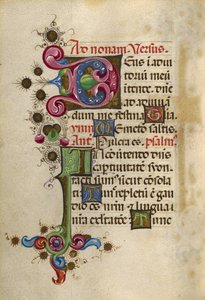 Ad nonam. Versus.
Deus i adiu
toriũ meũ
itende. Dñe
ad adiuuan
dum me festina. Gloria
ymn⁹ Memēto salutis.
Ant. Pulcra es. psalm⁹.
In conuertendo dñs
captiuitatē syon
facti sum⁹ sicut cōsola
ti Tunc repletũ ē gau
dio os nrm: & lingua
nra exultatōe. Tunc